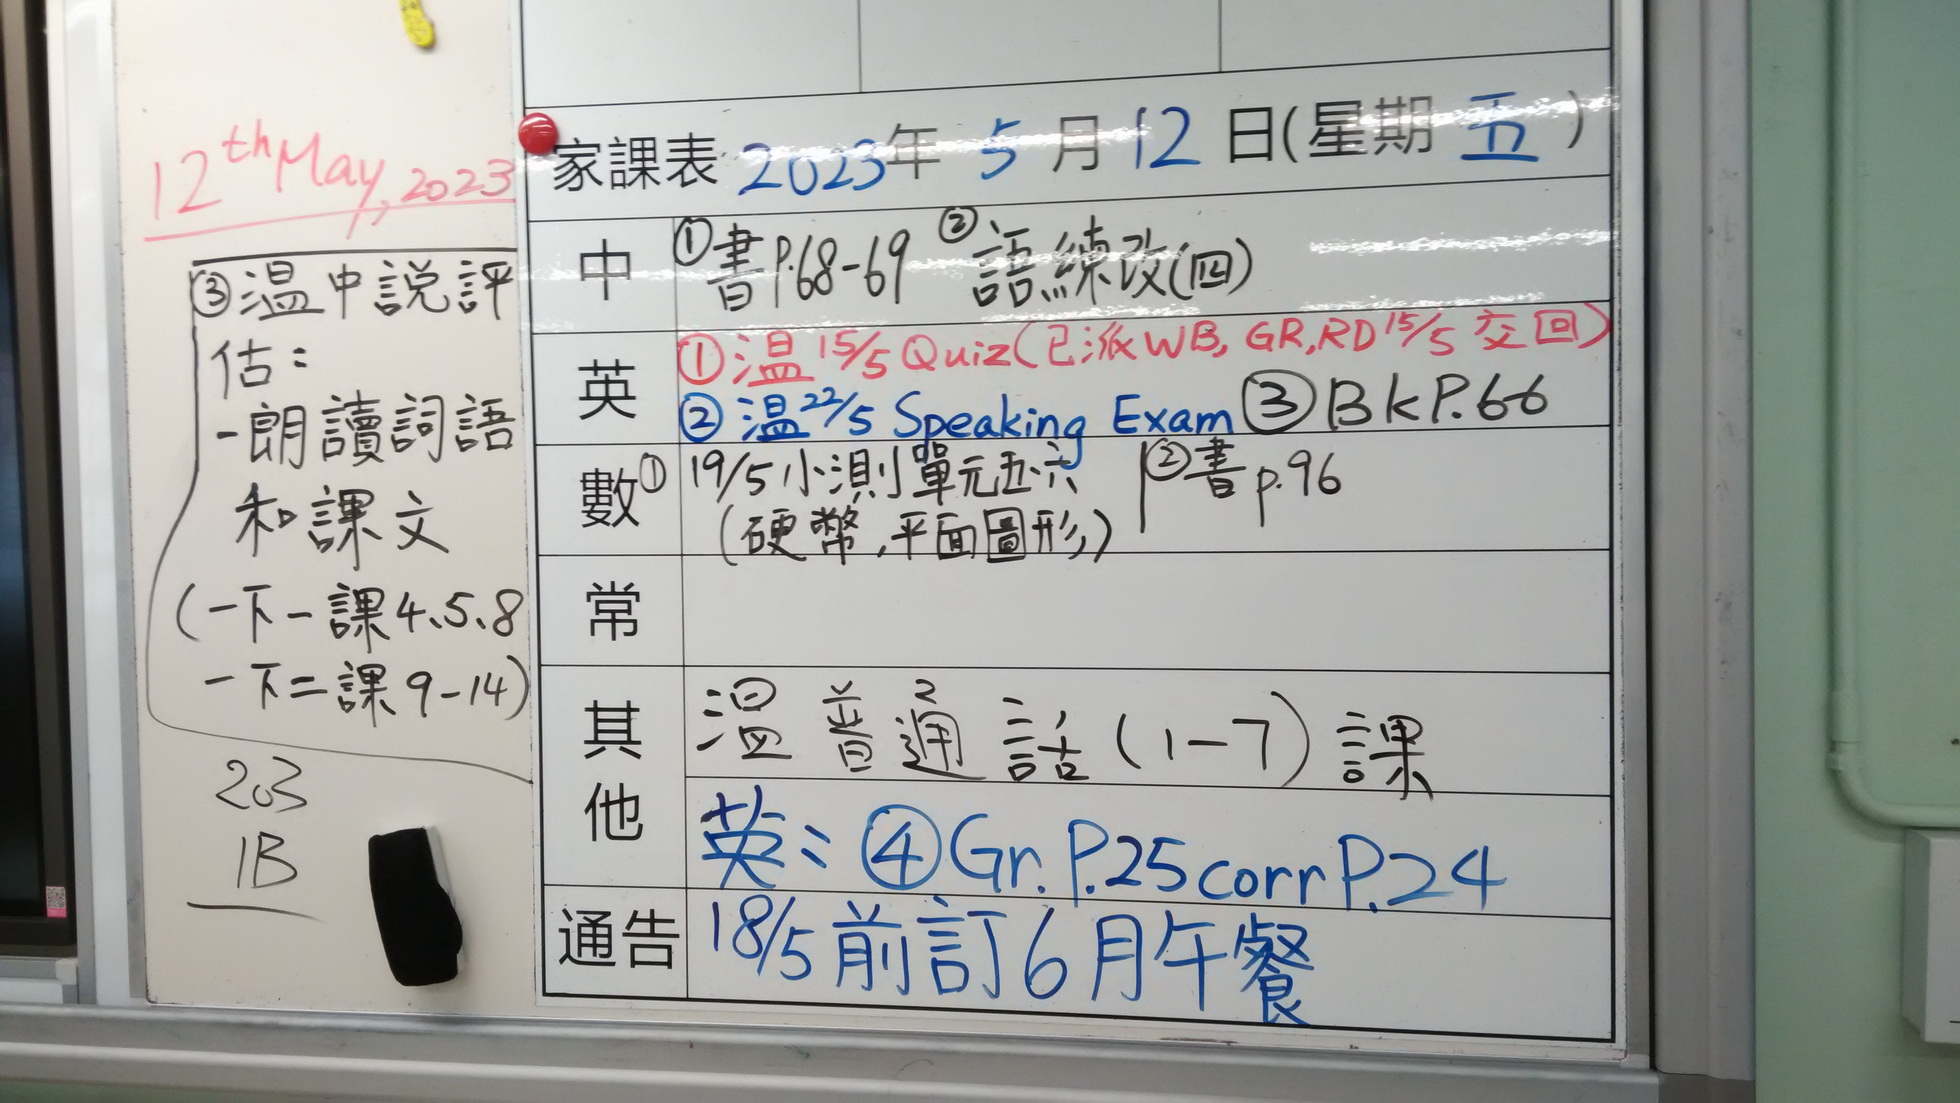 12th May, 2023
③温中説評
估：
-朗讀詞語
和課文
(一下一課4、5、8
一下二課9-14)
203
1B
家課表 2023年 5 月 12 日(星期 五 )
中 ①書P.68-69 ②語練改(四)
英 ①温15/5 Quiz(已派WB, GR,RD 15/5 交回)
②温22/5 Speaking Exam ③BkP.66
數 ①19/5小測單元五、六 ②書p.96
(硬幣,平面圖形)
常
其他 温普通話(1-7)課
英：④Gr.P.25 corr P.24
通告 18/5前訂6月午餐